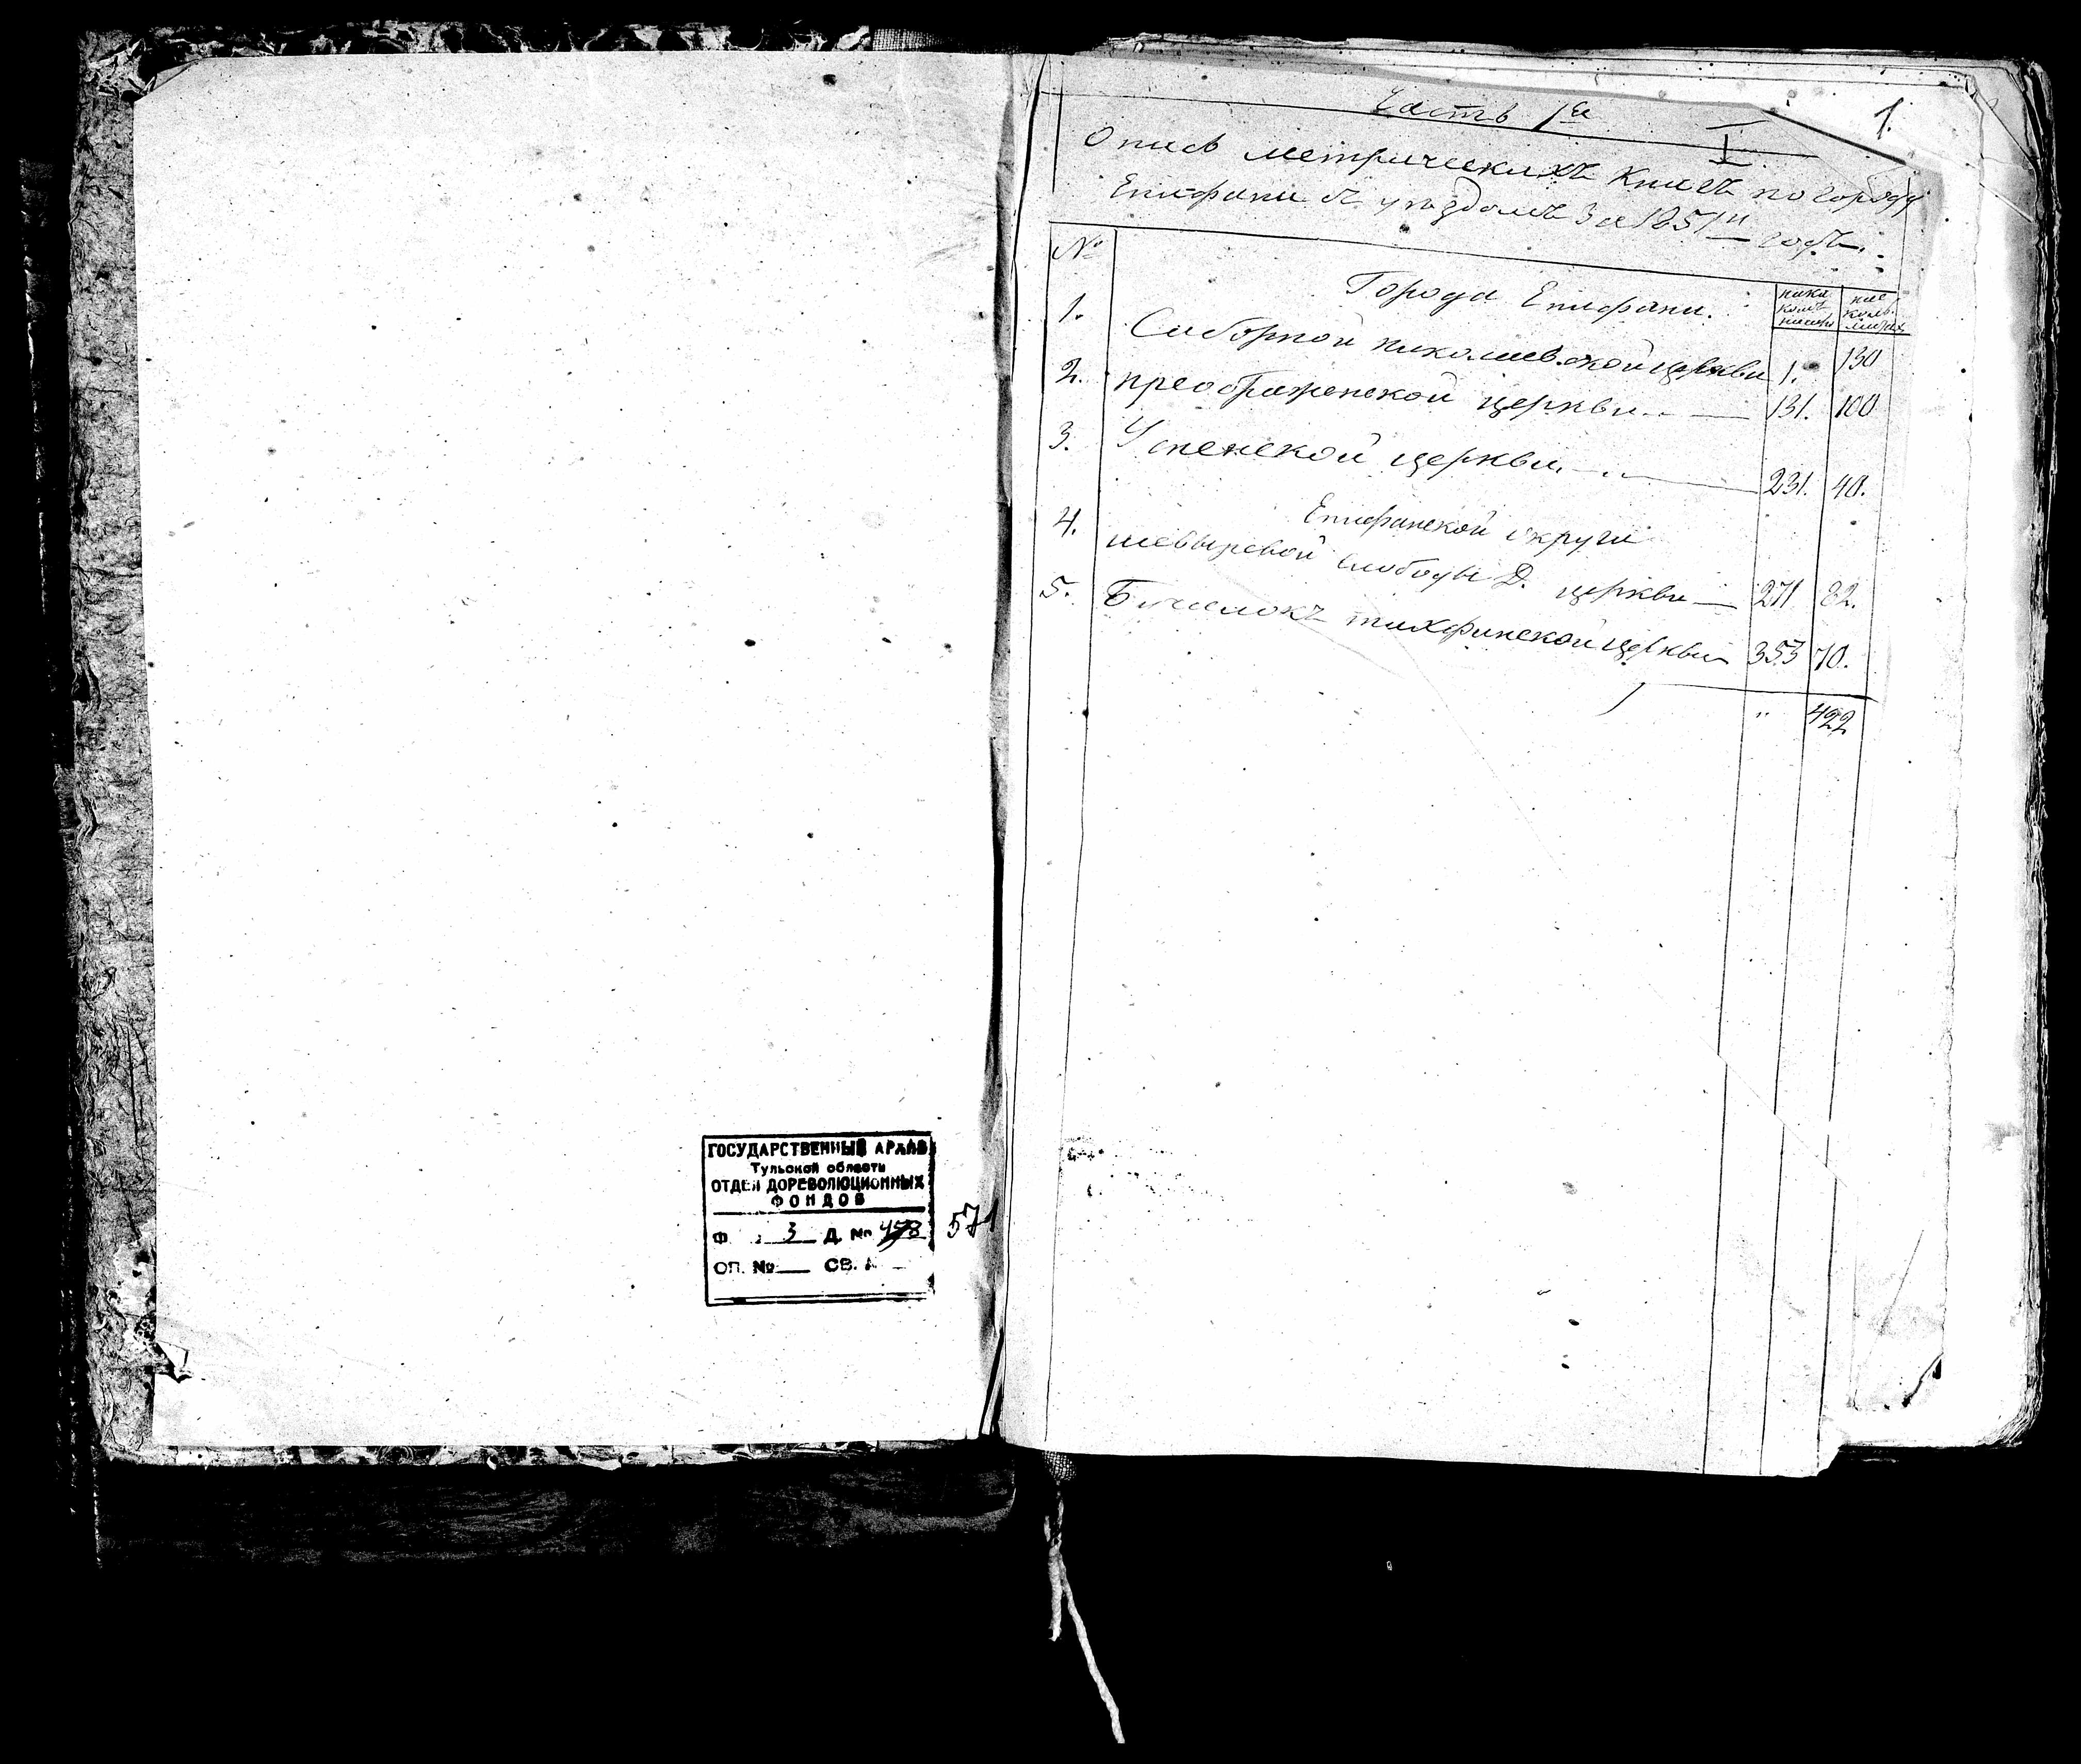 ГОСУДАРСТВЕННЫЙ АРХИВ
Тульской области
ОТДЕЛ ДОРЕВОЛЮЦИОННЫХ
ФОНДОВ
Ф. 3 Д. № 478 571
ОП. № СВ.
1.
Часть 1я
I
Опись метрическихъ Книгъ по городу
Епифани съ уѣздомъ За 1851й годъ.
№
Города Епифани.
1. Соборной николаевской церкви 1. 130
2. преображенской церкви 131. 100
3. Успенской церкви 231. 40.
Епифанской округи
4. шевыревой слободы Д. церкви 271 82.
5. тихфинской церкви 353 70.
" 422